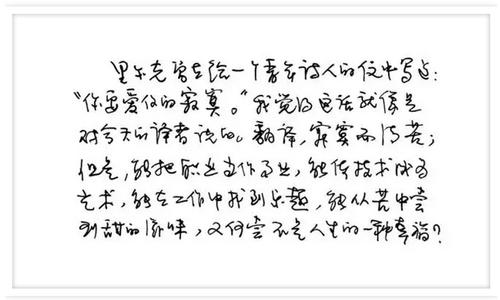 里尔克曾在给一个青年诗人的信中写道：
“你要爱你的寂寞。”我觉得这话就像是
对今天的译者说的。翻译，寂寞而清苦；
但是，能把职业当作事业，能使技术成为
艺术，能在工作中找到乐趣，能从苦中尝
到甜的滋味，又何尝不是人生的一种幸福？